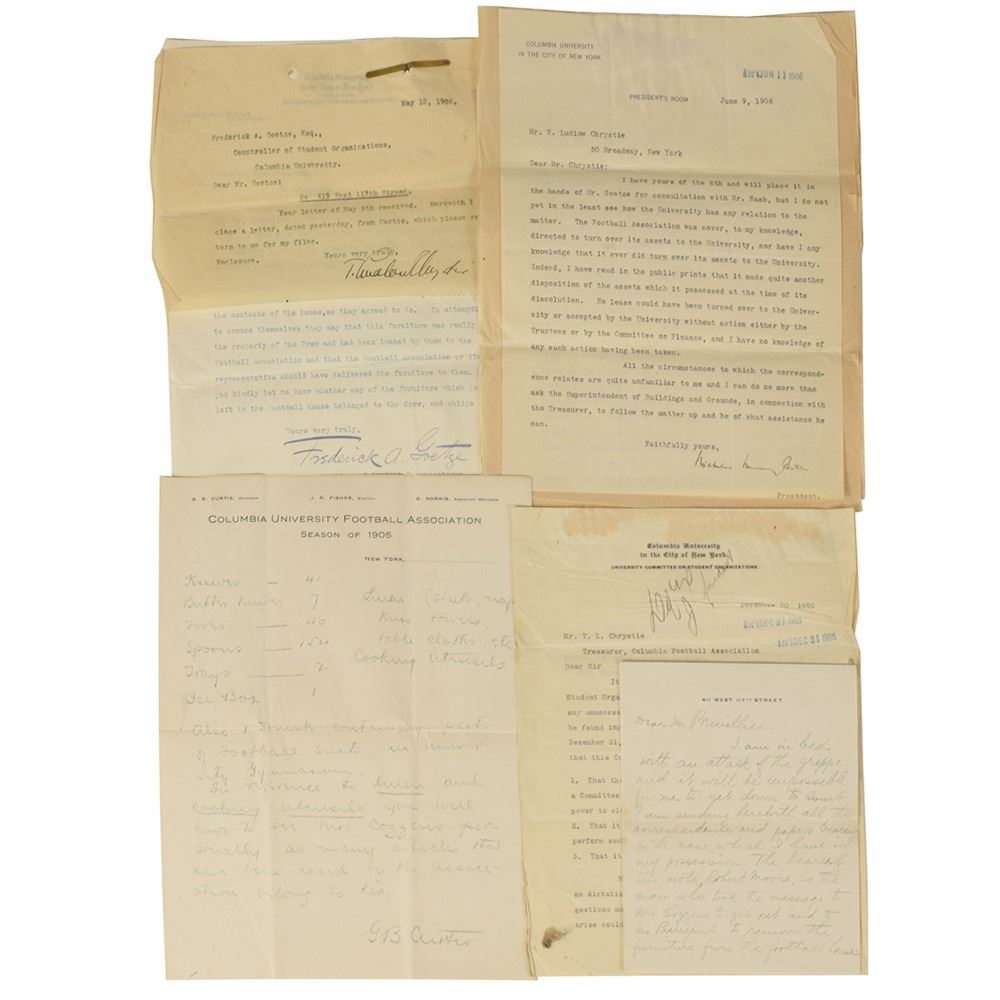 May 12, 1906.
Frederick A. Goetze, Esq.,
Comptroller of Student Organizations,
Columbia University.
Dear Mr. Goetze:
Re 419 West 117th Street.
Your letter of May 9th received. Herewith I
close a letter, dated yesterday, from Curtis, which please re
turn to me for my files.
Yours very truly,
Enclosure.
T. Ludlow Chrystie
the contents of the house, as they agreed to do. In attempti
to excuse themselves they say that this furniture was really
the property of the Crew and had been loaned by them to the
Football Association and that the Football Association or its
representative should have delivered the furniture to them.
you kindly let me know whether any of the furniture which yo
left in the Football house belonged to the Crew, and oblige
Yours very truly,
Frederick A. Goetze
COLUMBIA UNIVERSITY
IN THE CITY OF NEW YORK
REC'D JUN 11 1906
PRESIDENT'S ROOM June 9, 1906
Mr. T. Ludlow Chrystie
50 Broadway, New York
Dear Mr. Chrystie:
I have yours of the 6th and will place it in
the hands of Mr. Goetze for consultation with Mr. Nash, but I do not
yet in the least see how the University has any relation to the
matter. The Football Association was never, to my knowledge,
directed to turn over its assets to the University, nor have I any
knowledge that it ever did turn over its assets to the University.
Indeed, I have read in the public prints that it made quite another
disposition of the assets which it possessed at the time of its
dissolution. No lease could have been turned over to the Univer-
sity or accepted by the University without action either by the
Trustees or by the Committee on Finance, and I have no knowledge of
any such action having been taken.
All the circumstances to which the correspond-
ence relates are quite unfamiliar to me and I can do no more than
ask the Superintendent of Buildings and Grounds, in connection with
the Treasurer, to follow the matter up and be of what assistance he
can.
Faithfully yours,
Nicholas Murray Butler
President.
G. B. CURTIS, MANAGER J. R. FISHER, CAPTAIN G. NORRIS, ASSISTANT MANAGER
COLUMBIA UNIVERSITY FOOTBALL ASSOCIATION
SEASON OF 1905
NEW YORK,
Knives — 41
Butter knives 7
Forks — 46
Spoons — 154
Trays — 2
Ice Box 1
Linen — (sheets, nap
towels,
table cloths, etc
Cooking Utensils
Also 1 trunk containing parts
of football suits in Univer
sity Gymnasium.
In reference to linen and
cooking utensils you will
have to see Mrs Cozzens per-
sonally as many articles that
have been used by the Associ-
ation belong to her.
G B Curtis
Columbia University
in the City of New York
UNIVERSITY COMMITTEE ON STUDENT ORGANIZATIONS
December 20 1905
REC'D DEC 21 1905
REC'D DEC 21 1905
Mr. T. L. Chrystie
Treasurer, Columbia Football Association
Dear Sir
It
Student Orga
any unnecess
be found imp
December 31,
that this Co
1. That the
a Committee
power to cl
2. That it
perform suc
3. That it
no dictatio
gestions ma
arise could
411 WEST 117TH STREET
Dear Mr
I am in bed
with an attack of the grippe
and it will be impossible
for me to get down to Court
I am sending herewith all the
correspondence and papers bearing
in the case which I have in
my possession. The bearer of
this note, Robert Moore, is the
man who took the message to
Mrs Cozzens to get out and to
Mr Pierrepont to remove the
furniture from the football house